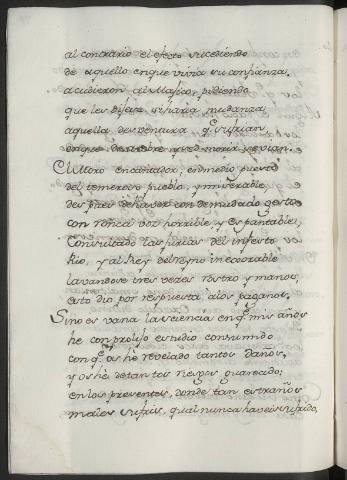 al contrario el efeto sucediendo
de aquello en que viuia su confiança.
acudieron al Mago, pidiendo
que les dijese si haria mudança
aquella desventura q̃ sufrian
de que de sobre morir se vian.
El Moro encantador, en medio puesto
del temeroso pueblo, y miserable
despues de hauer con demudado gesto
con ronca voz horrible y espantable,
Consultado las furias del infesto
Rio, y al Rey del reyno inexorable
lavandose tres vezes rostro y manos,
esto dio por respuesta a los paganos.
Sino es vana la sciencia en q̃ mis años
he con prolijo estudio consumido
con q̃ os he revelado tantos daños,
y os he de tantos riesgos guarecido;
en los presentes, donde tan estraños
males sufris, qual nunca haueis sufrido,